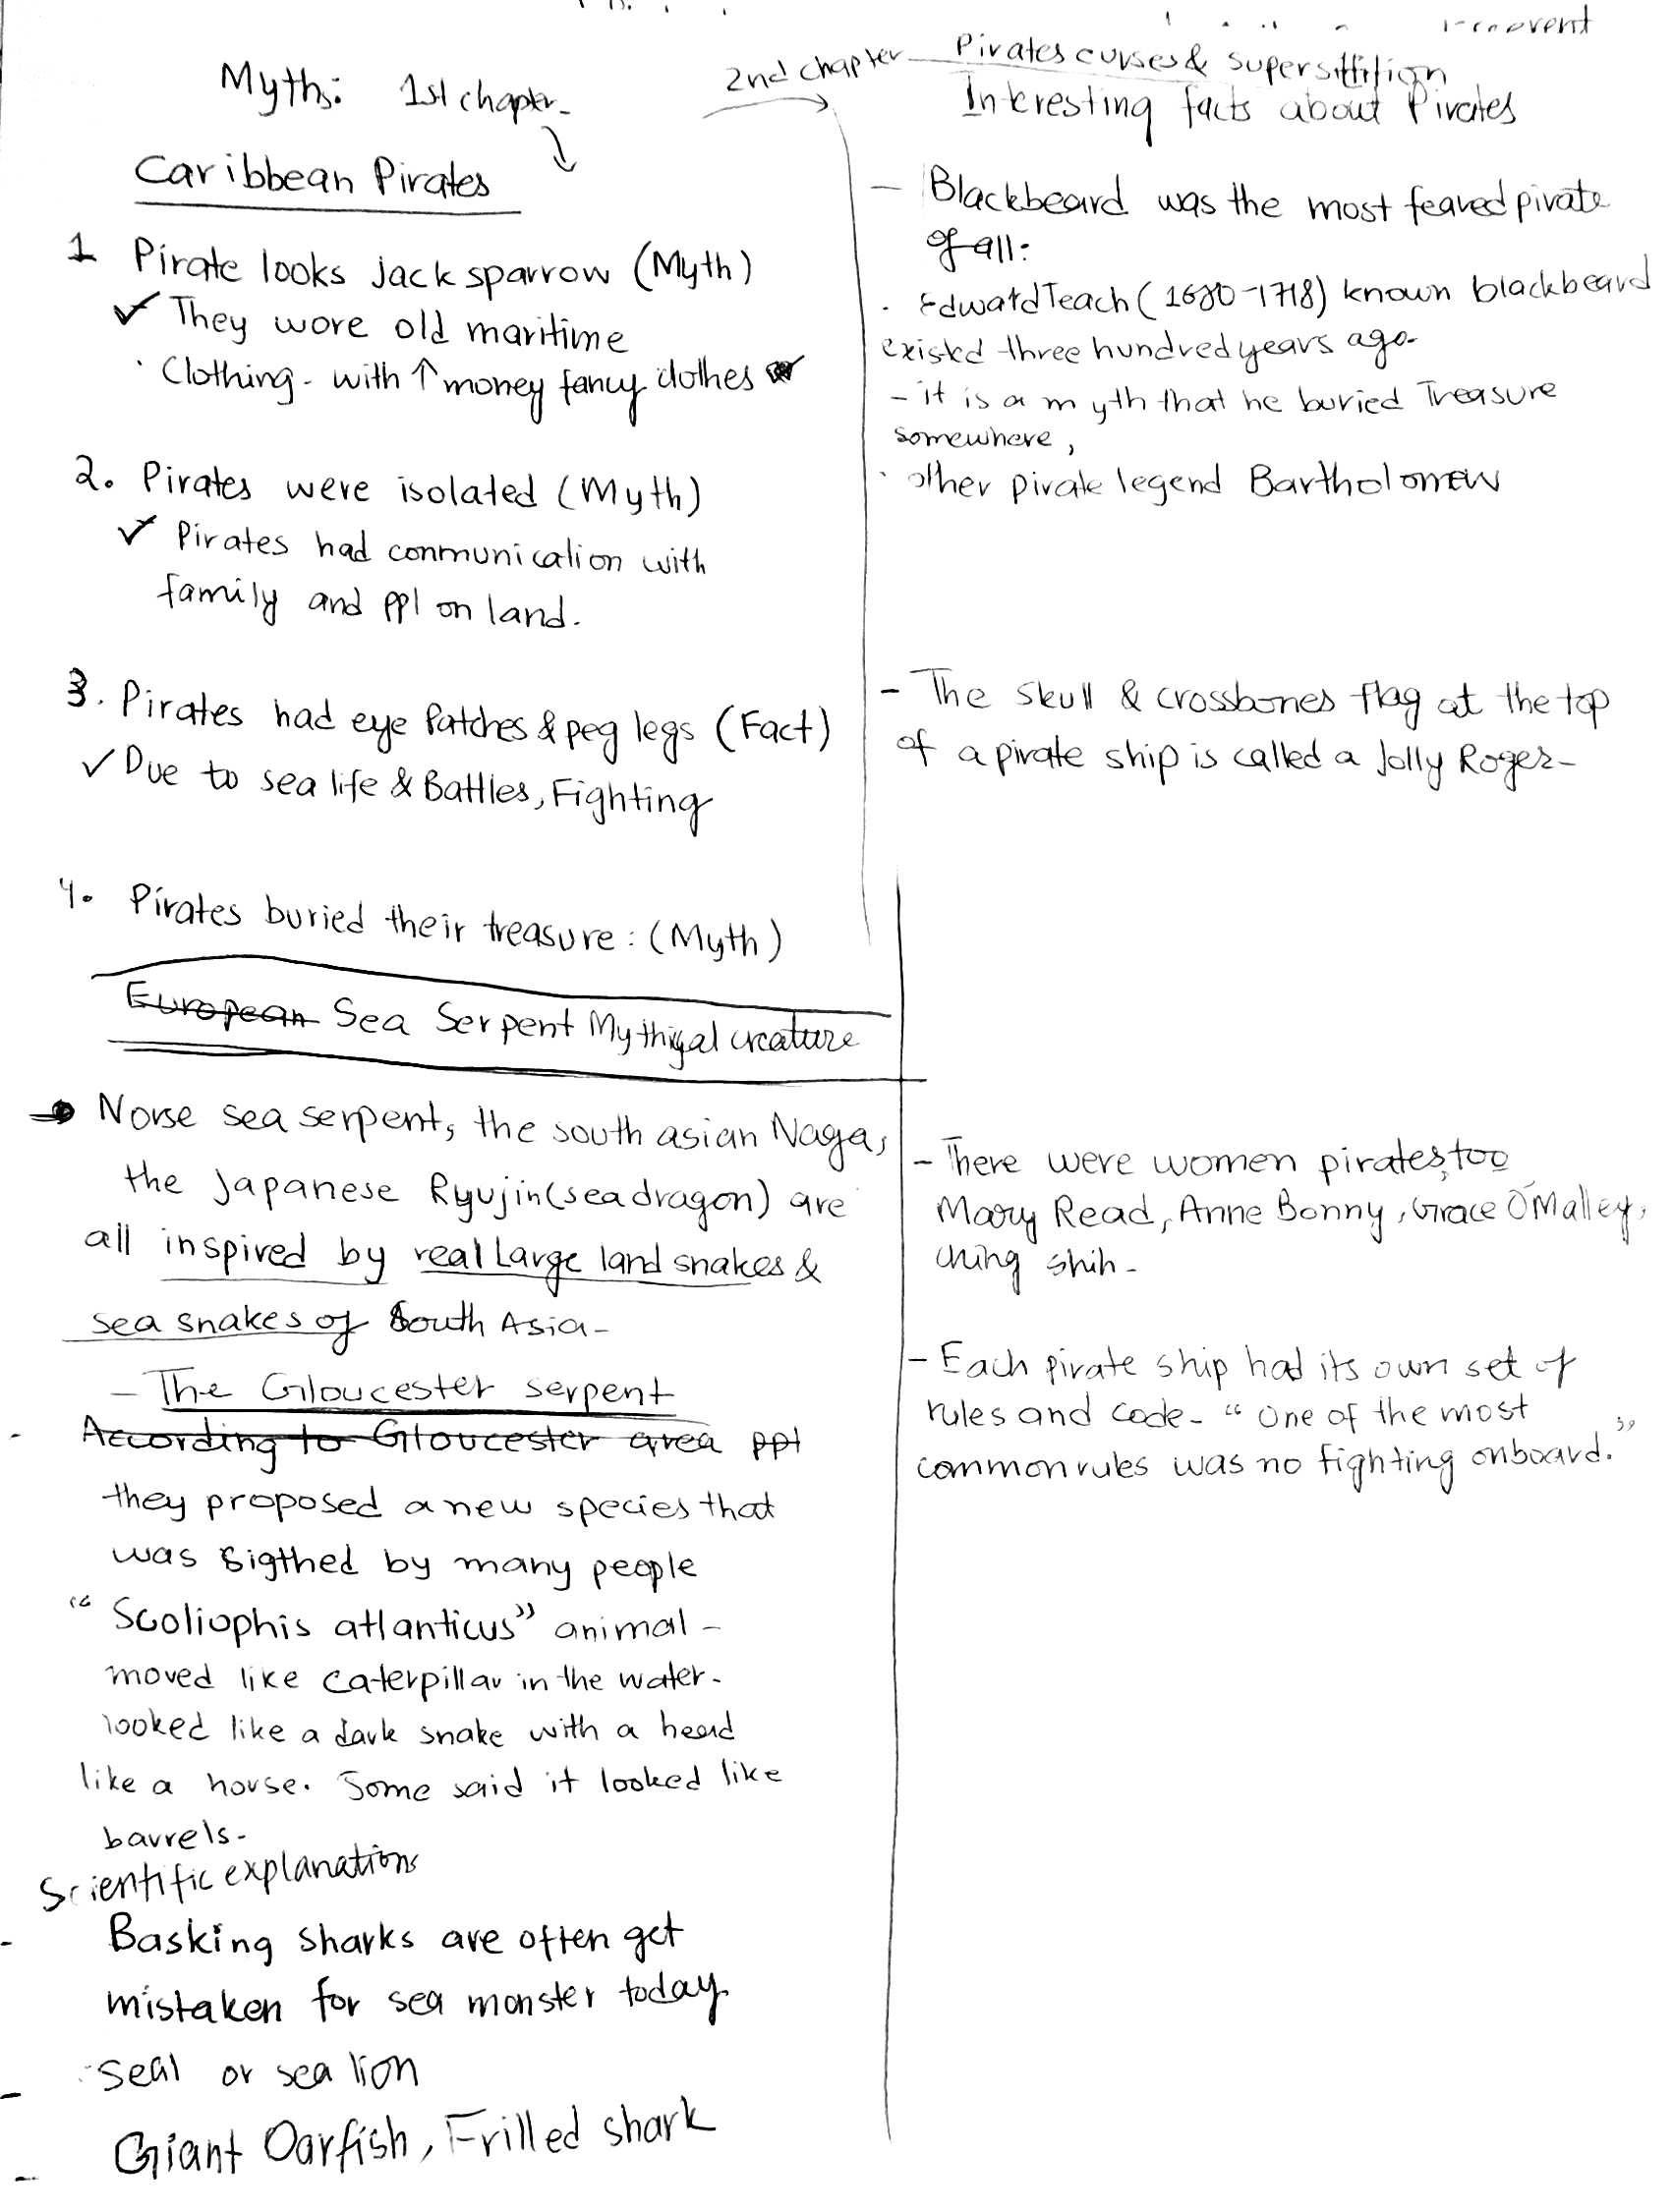 Myths: 1st chapter
Caribbean Pirates
1 Pirate looks jack sparrow (Myth)
✓ They wore old maritime
· Clothing - with ↑ money fancy clothes
2. Pirates were isolated (Myth)
✓ Pirates had conmunication with
family and ppl on land.
3. Pirates had eye Patches & peg legs (Fact)
✓ Due to sea life & Battles, Fighting
4. Pirates buried their treasure: (Myth)
European Sea Serpent Mythical creature
Norse sea serpent, the south asian Naga,
the Japanese Ryujin (sea dragon) are
all inspired by real Large land snakes &
sea snakes of South Asia-
- The Gloucester serpent
- According to Gloucester area ppl
they proposed a new species that
was sigthed by many people
"Scoliophis atlanticus" animal -
moved like caterpillar in the water.
looked like a dark snake with a head
like a horse. Some said it looked like
barrels-
Scientific explanations
- Basking sharks are often get
mistaken for sea monster today
- seal or sea lion
- Giant Oarfish, Frilled shark
2nd chapter Pirates curses & superstition
Interesting facts about Pirates
- Blackbeard was the most feared pirate
of all:
· Edward Teach (1680-1718) known blackbeard
existed three hundred years ago-
- it is a myth that he buried Treasure
somewhere,
· other pirate legend Bartholomew
- The skull & crossbones flag at the top
of a pirate ship is called a Jolly Roger-
- There were women pirates, too
Mary Read, Anne Bonny, Grace O'Malley,
ching shih-
- Each pirate ship had its own set of
rules and code- "One of the most
common rules was no fighting onboard."